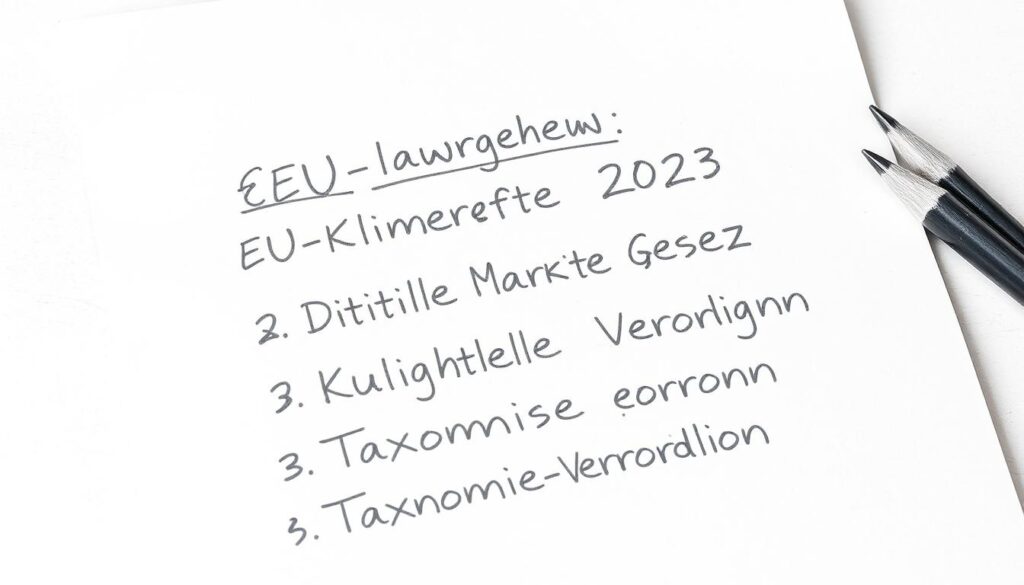 EEU-lawrgehew:
EU-Klimerefte 2023
2. Dititille Markte Gesez
3. Kulightlelle Verorlignn
3. Taxomnise eorronn
3. Taxnomie-Verrordlion